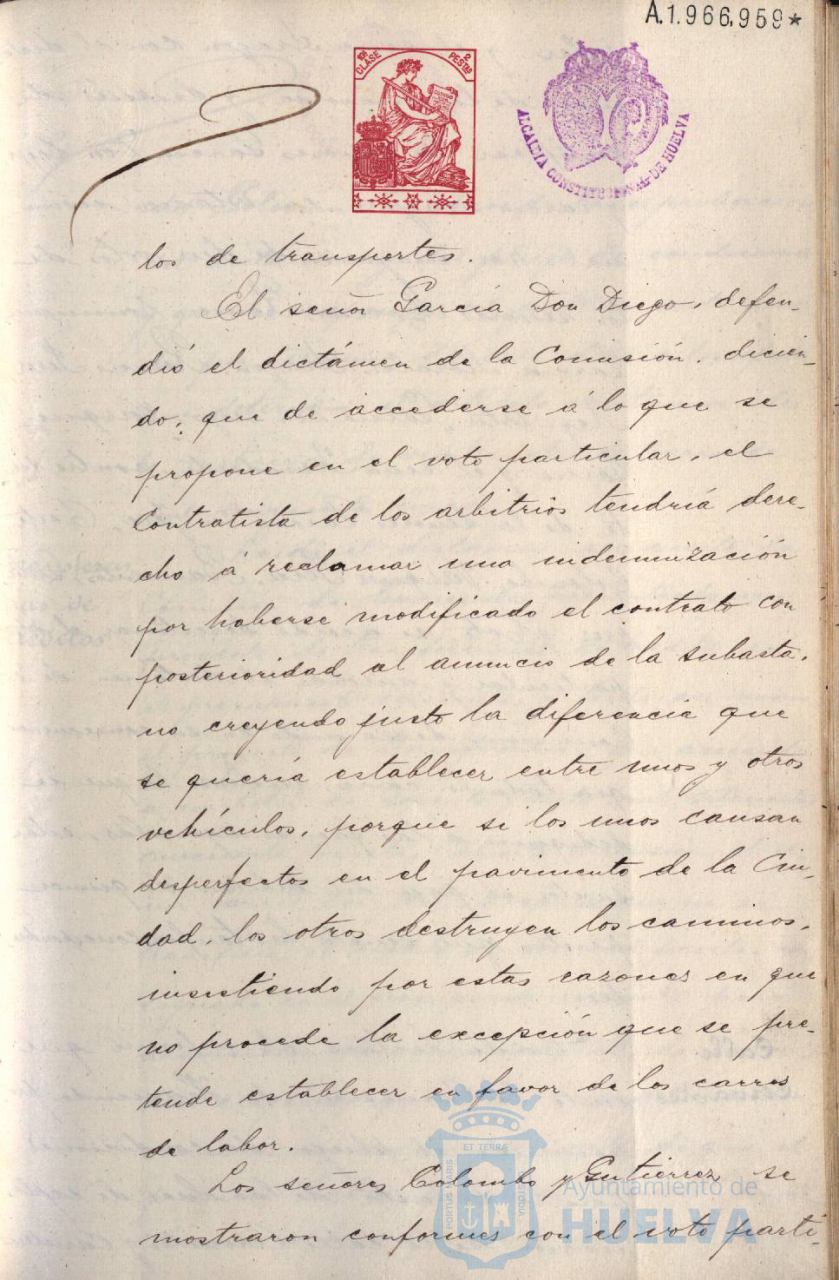 A.1.966.959*
10ª CLASE
2 PESTAS
ALCALDIA CONSTITUCIONAL DE HUELVA
los de transportes.
El señor García Don Diego, defen-
dió el dictámen de la Comisión, dicien-
do; que de accederse á lo que se
propone en el voto particular, el
Contratista de los arbitrios tendría dere-
cho á reclamar una indemnización
por haberse modificado el contrato con
posterioridad al anuncio de la subasta,
no creyendo justo la diferencia que
se quería establecer entre unos y otros
vehículos, porque si los unos causan
desperfectos en el pavimento de la Ciu-
dad, los otros destruyen los caminos,
insistiendo por estas razones en que
no procede la excepción que se pre-
tende establecer en favor de los carros
de labor.
Los señores Colombo y Gutiérrez se
mostraron conformes con el voto parti-
PORTUS MARIS ET TERRÆ CUSTODIA
Ayuntamiento de
HUELVA